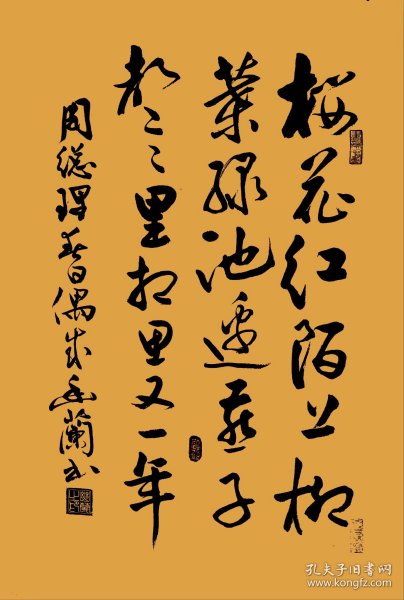 樱花红陌上柳
葉绿池邊燕子
声々里相思又一年
周總理春日偶成 蘭书
孔夫子旧书网
www.kongfz.com